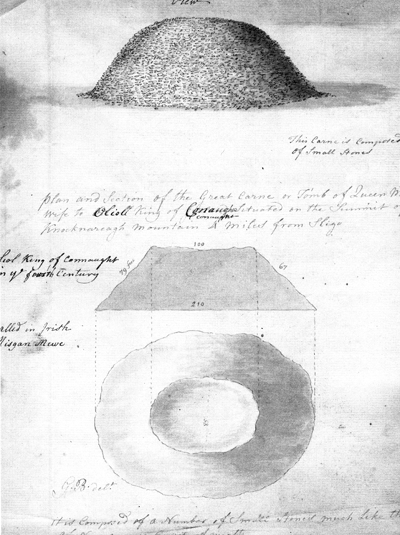 View
This Carne is Composed
Of Small Stones
Plan and Section of the Great Carne or Tomb of Queen M
Wife to Olioll King of Connaught Situated on the Summit o
connaught
Knocknareagh Mountain 2 Miles from Sligo
liol King of Connaught
in ye fourth Century
100
79 feet
67
210
alled in Irish
Misgan Mewe
J.B. delt.
It is Composed of a Number of Small Stones much Like th